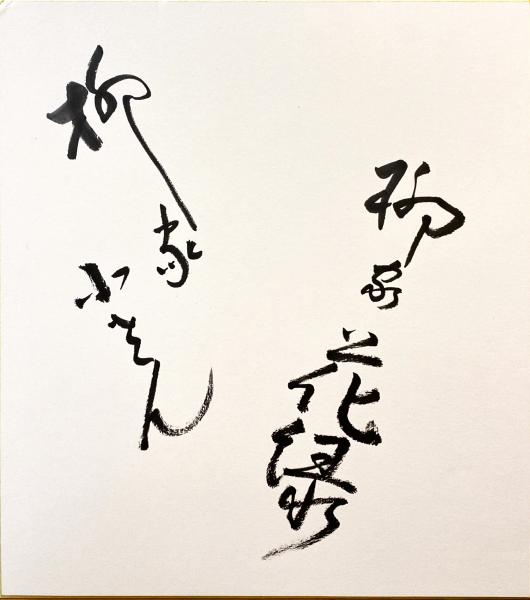 柳家花緑
柳家小さん